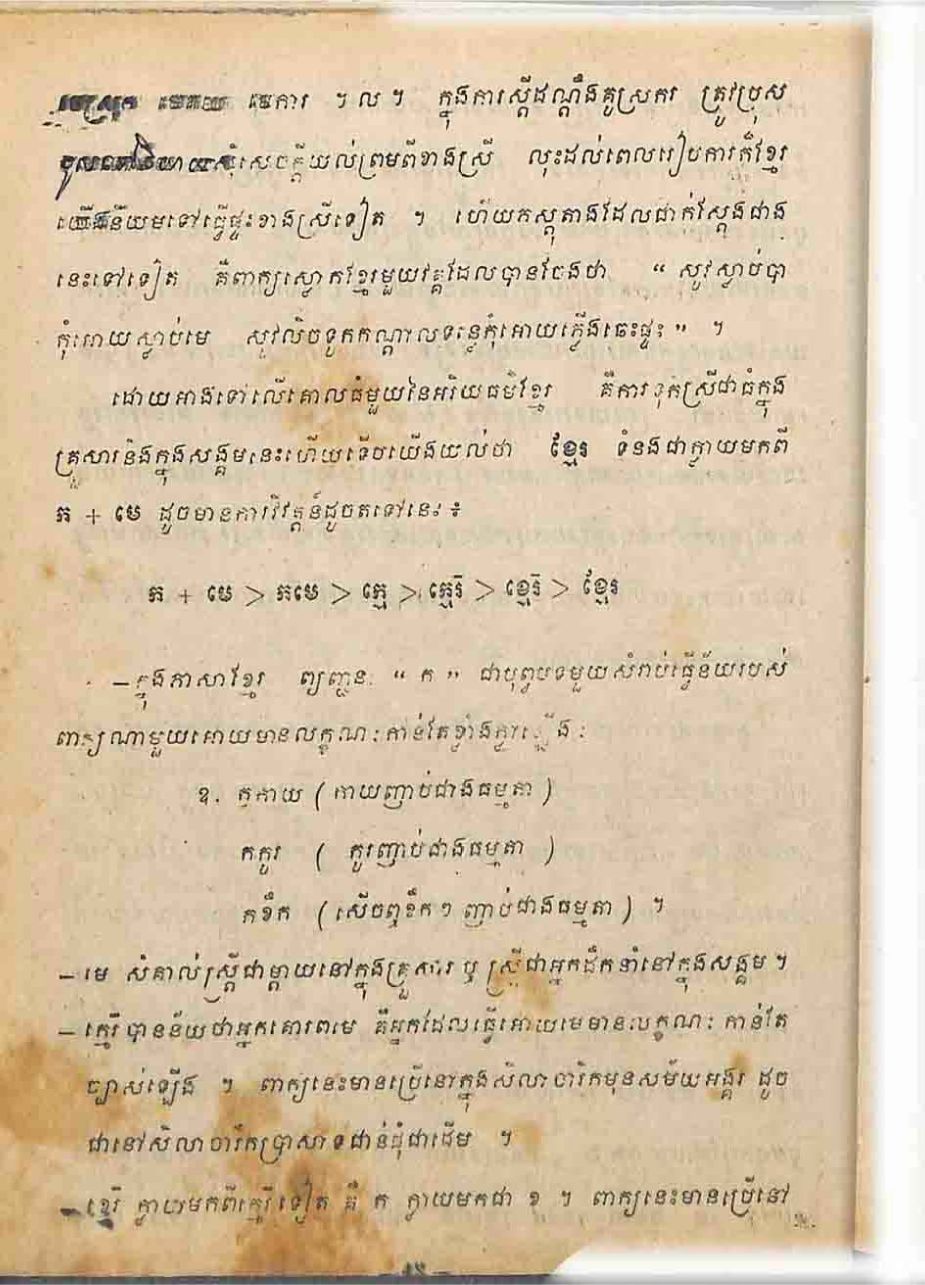 មេការ ។ ល ។ ក្នុងការស្ដីដណ្ដឹងគូស្រករ ត្រូវប្រុស
សុំសេចក្ដីយល់ព្រមពីខាងស្រី លុះដល់ពេលរៀបការក៏ខ្មែរ
យើងនិយមទៅធ្វើផ្ទះខាងស្រីទៀត ។ ហើយភស្តុតាងដែលជាក់ស្ដែងជាង
នេះទៅទៀត គឺពាក្យស្លោកខ្មែរមួយវគ្គដែលបានចែងថា “ សូវស្លាប់បា
កុំអោយស្លាប់មេ សូវលិចទូកកណ្ដាលទន្លេកុំអោយភ្លើងឆេះផ្ទះ ” ។
ដោយអាងទៅលើគោលធំមួយនៃអរិយធម៌ខ្មែរ គឺការទុកស្រីជាធំក្នុង
គ្រួសារនិងក្នុងសង្គមនេះហើយទើបយើងយល់ថា ខ្មែរ ទំនងជាក្លាយមកពី
ក + មេ ដូចមានការវិវត្តន៍ដូចតទៅនេះ ៖
ក + មេ > កមេ > ក្មេ > ក្មេរិ > ខ្មេរិ > ខ្មែរ
– ក្នុងភាសាខ្មែរ ព្យញ្ជនៈ “ ក ” ជាបុព្វបទមួយសំរាប់ធ្វើន័យរបស់
ពាក្យណាមួយអោយមានលក្ខណៈកាន់តែខ្លាំងក្លាឡើង :
ឧ. កកាយ ( កាយញាប់ជាងធម្មតា )
កកូរ ( កូរញាប់ជាងធម្មតា )
កខឹក ( សើចឮខឹកៗ ញាប់ជាងធម្មតា ) ។
– មេ សំគាល់ស្ត្រីជាម្ដាយនៅក្នុងគ្រួសារ ឬ ស្រីជាអ្នកដឹកនាំនៅក្នុងសង្គម ។
– ក្មេរិបានន័យថាអ្នកគោរពមេ គឺអ្នកដែលធ្វើអោយមេមានលក្ខណៈ កាន់តែ
ច្បាស់ឡើង ។ ពាក្យនេះមានប្រើនៅក្នុងសិលាចារឹកមុនសម័យអង្គរ ដូច
ជានៅសិលាចារឹកប្រាសាទជាន់ជុំជាដើម ។
– ខ្មេរិ ក្លាយមកពីក្មេរិទៀត គឺ ក ក្លាយមកជា ខ ។ ពាក្យនេះមានប្រើនៅ